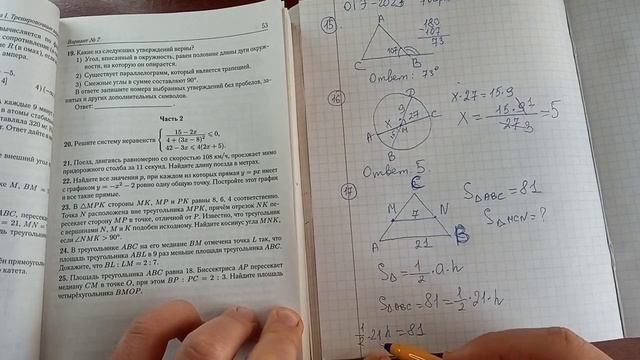 53
Вариант № 7
19. Какие из следующих утверждений верны?
1) Угол, вписанный в окружность, равен половине длины дуги окруж-
ности, на которую он опирается.
2) Существует параллелограмм, который является трапецией.
3) Смежные углы в сумме составляют 90°.
В ответе запишите номера выбранных утверждений без пробелов, за-
пятых и других дополнительных символов.
Ответ:
Часть 2
20. Решите систему неравенств
15 − 2x / 4 + (3x − 8)² ⩽ 0,
42 − 3x ⩽ 4(2x + 5).
21. Поезд, двигаясь равномерно со скоростью 108 км/ч, проезжает мимо
придорожного столба за 11 секунд. Найдите длину поезда в метрах.
22. Найдите все значения p, при каждом из которых прямая y = px имеет
с графиком y = −x² − 2 ровно одну общую точку. Постройте этот график
и все такие прямые.
23. В △MPK стороны MK, MP и PK равны 8, 6, 4 соответственно.
Точка N расположена вне треугольника MPK, причём отрезок NK пе-
ресекает сторону MP в точке, отличной от P. Известно, что треугольник
с вершинами N, M и K подобен исходному. Найдите косинус угла NMK,
если ∠NMK > 90°.
24. В треугольнике ABC на его медиане BM отмечена точка L так, что
площадь треугольника ABL в 9 раз меньше площади треугольника ABC.
Докажите, что BL : LM = 2 : 7.
25. Площадь треугольника ABC равна 18. Биссектриса AP пересекает
медиану CM в точке O, при этом BP : PC = 2 : 3. Найдите площадь
четырёхугольника BMOP.
15
A
180
-107
73
107
C
B
Ответ: 73°
16
D
9
x
27
C
A
B
x·27=15·9
x = 15·9 / 27 = 5
Ответ: 5.
17
C
M
N
7
A
21
B
S△ABC = 81
S△MCN = ?
S△ = 1/2 · a · h
S△ABC = 81 = 1/2 · 21 · h
1/2 · 21 · h = 81